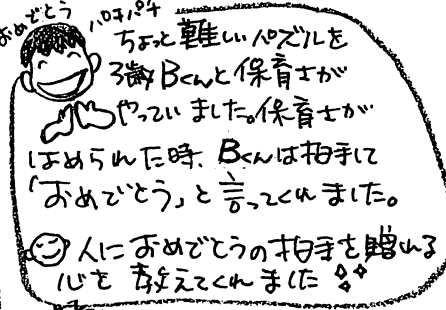 おめでとう
パチパチ
ちょっと難しいパズルを
3歳Bくんと保育士が
やっていました。保育士が
はめられた時、Bくんは拍手して
「おめでとう」と言ってくれました。
人におめでとうの拍手を贈れる
心を教えてくれました